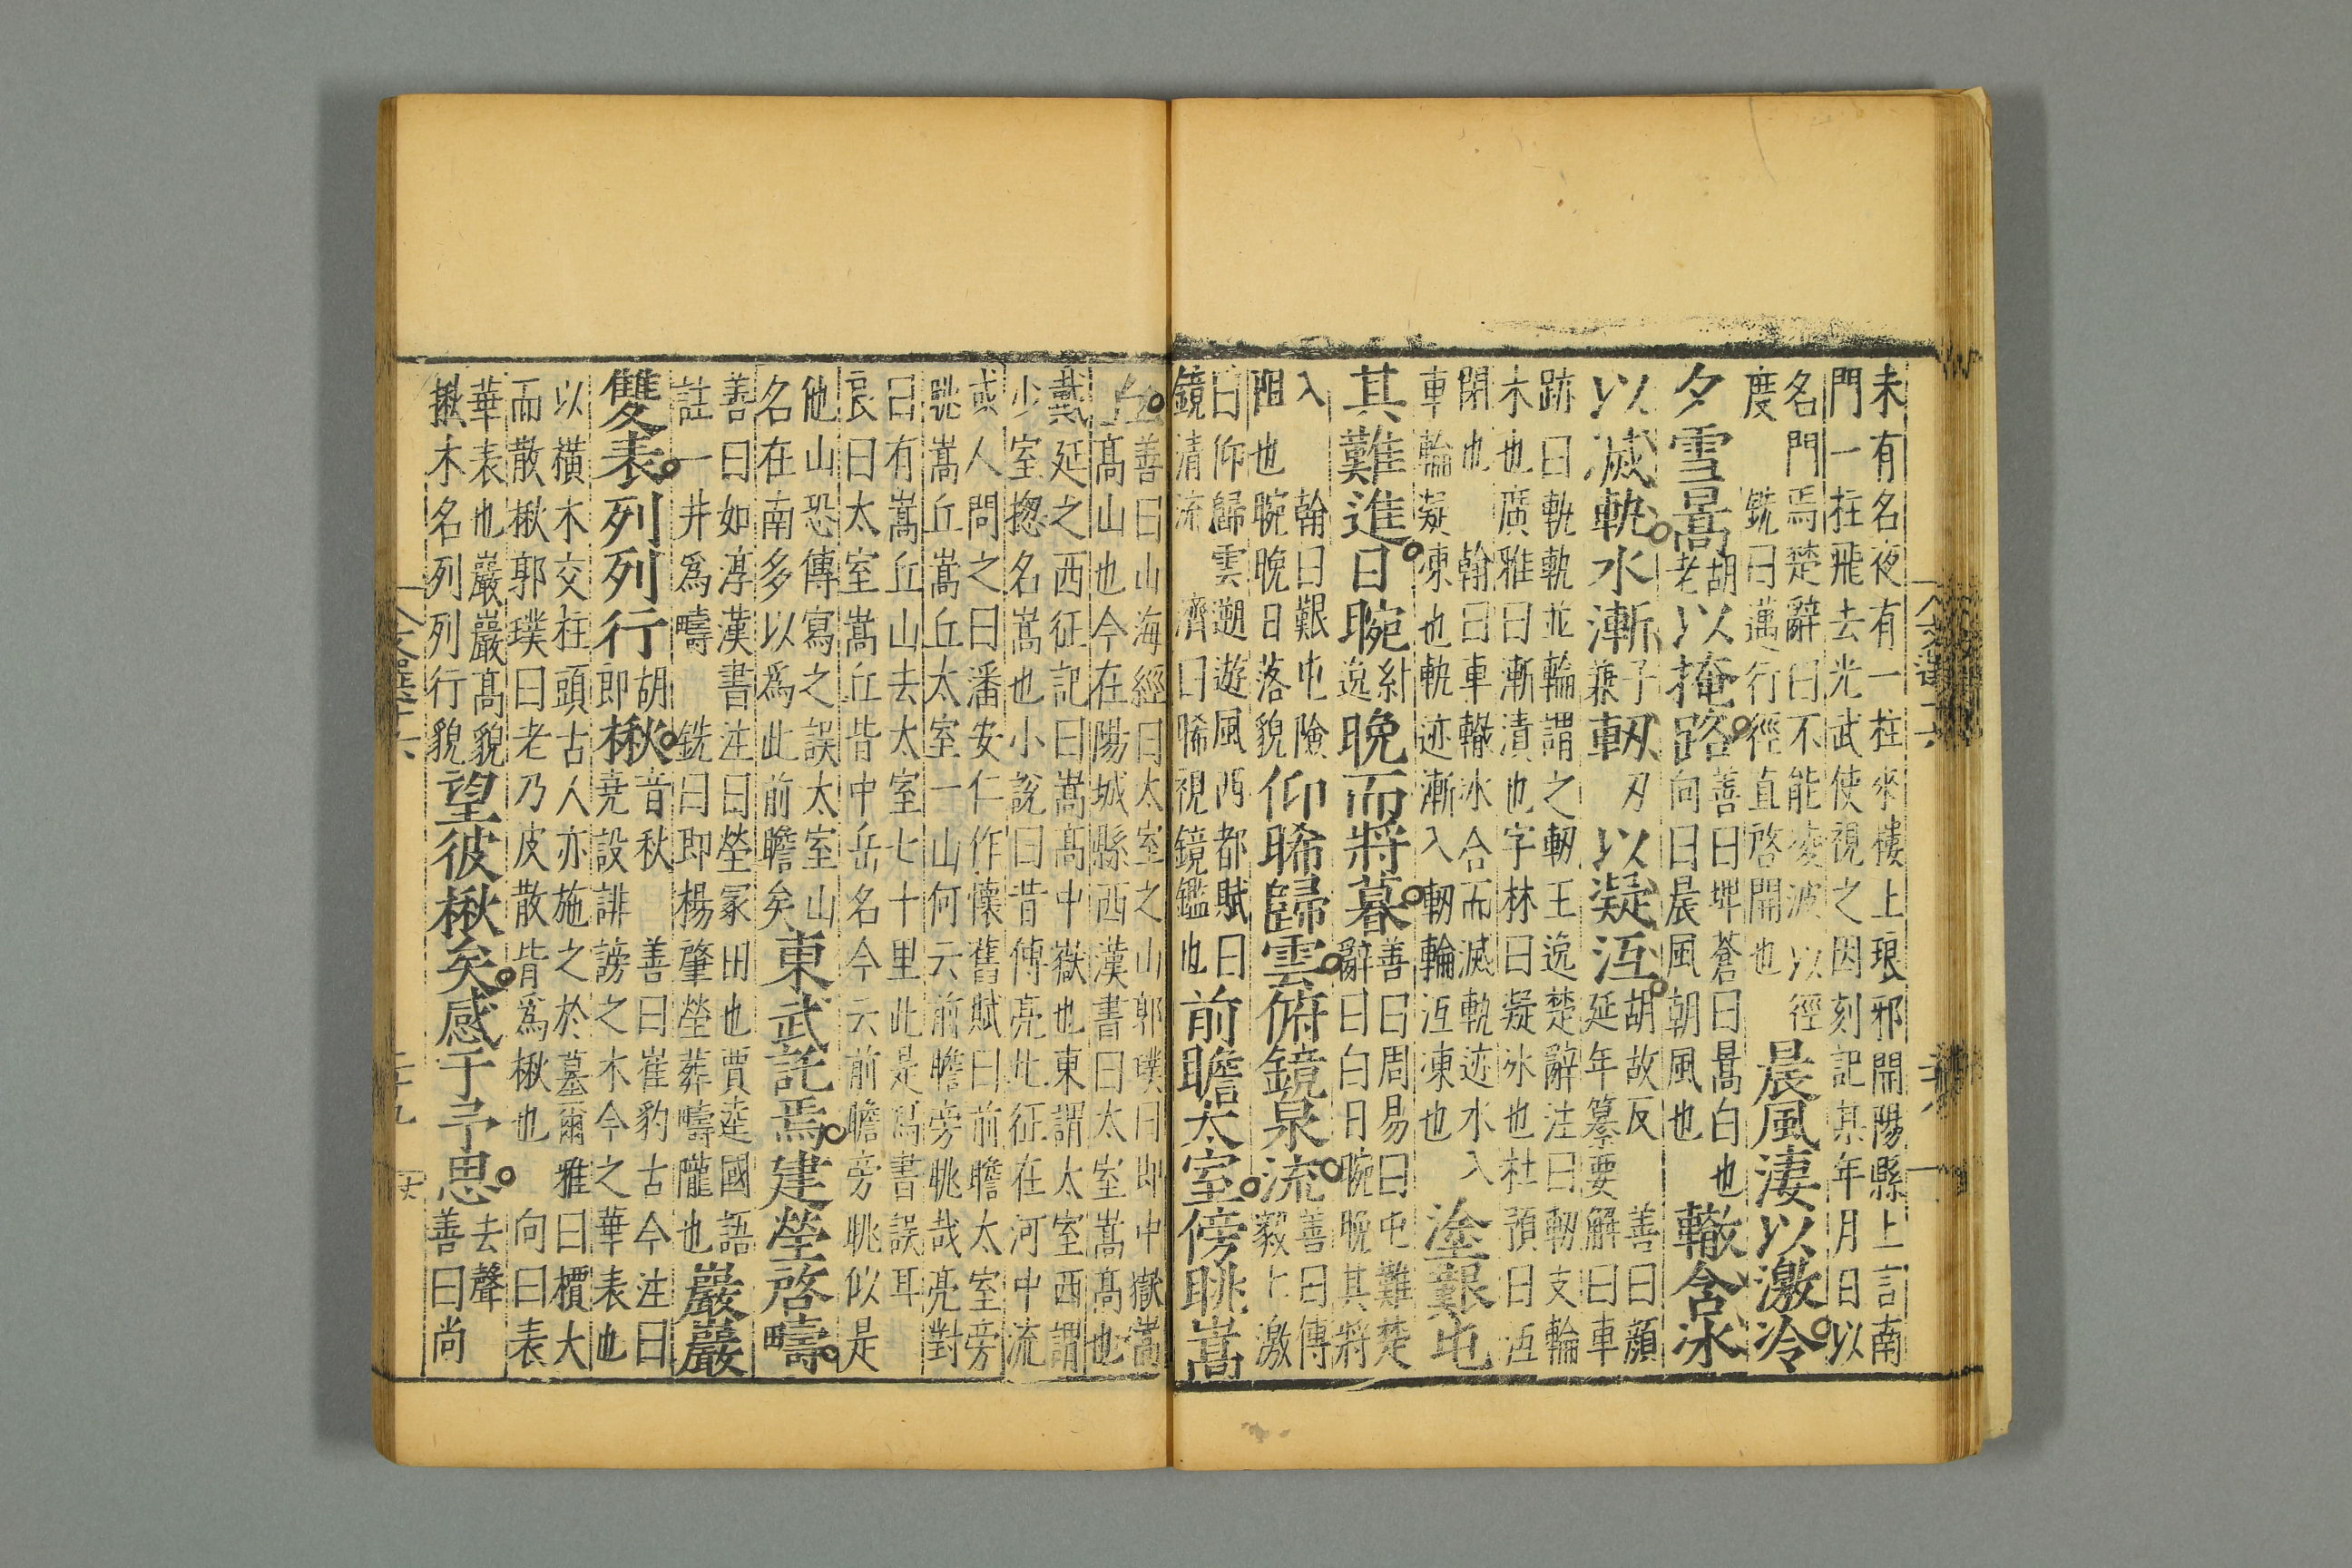 未有名夜有一柱來樓上琅邪開陽縣上言南
門一柱飛去光武使視之因刻記其年月日以
名門焉楚辭曰不能凌波以徑
度 銑曰邁行徑直啓開也
晨風淒以激冷
夕雪暠胡老以掩路善曰埤蒼曰暠白也
向曰晨風朝風也
轍含冰
以滅軌水漸子兼軔刃以凝沍胡故反 善曰顏
延年纂要解曰車
跡曰軌軌並輪謂之軔王逸楚辭注曰軔支輪
木也廣雅曰漸漬也字林曰凝冰也杜預曰沍
閉也 翰曰車轍冰合而滅軌迹水入
車輪凝凍也軌迹漸入軔輪沍凍也
塗艱屯
其難進日晼紆逸晚而將暮善曰周易曰屯難楚
辭曰白日晼晚其將
入 翰曰艱屯險
阻也晼晚日落貌
仰睎歸雲俯鏡泉流善曰傳
毅七激
曰仰歸雲遡遊風西都賦曰
鏡清流 濟曰睎視鏡鑑也
前瞻太室傍眺嵩
丘善曰山海經曰太室之山郭璞曰即中嶽嵩
高山也今在陽城縣西漢書曰太室嵩高也
戴延之西征記曰嵩高中嶽也東謂太室西謂
少室揔名嵩也小說曰昔傅亮北征在河中流
或人問之曰潘安仁作懷舊賦曰前瞻太室旁
眺嵩丘嵩丘太室一山何云前瞻旁眺哉亮對
曰有嵩丘山去太室七十里此是寫書誤耳
良曰太室嵩丘皆中岳名今云前瞻旁眺似是
他山恐傳寫之誤太室山
名在南多以爲此前瞻矣
東武託焉建塋啓疇
善曰如淳漢書注曰塋冢田也賈逵國語
註一井爲疇 銑曰即楊肇塋葬疇隴也
巖巖
雙表列列行胡即楸音秋 善曰崔豹古今注曰
尭設誹謗之木今之華表也
以橫木交柱頭古人亦施之於墓爾雅曰櫝大
而散楸郭璞曰老乃皮散皆爲楸也 向曰表
華表也巖巖高貌
揪木名列列行貌
望彼楸矣感于予思去聲
善曰尚